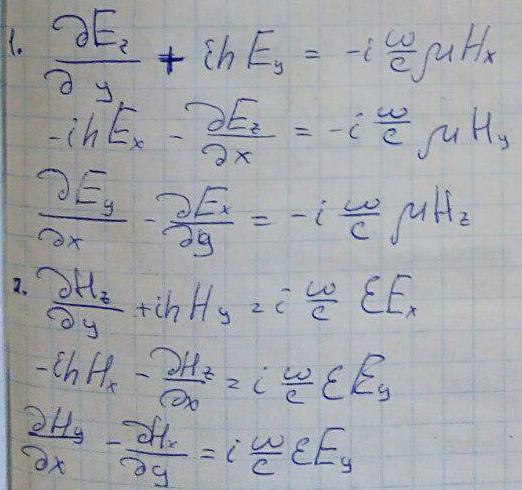 1. ∂E_z/∂y + ihE_y = -i ω/c μH_x
-ihE_x - ∂E_z/∂x = -i ω/c μH_y
∂E_y/∂x - ∂E_x/∂y = -i ω/c μH_z
2. ∂H_z/∂y + ihH_y = i ω/c εE_x
-ihH_x - ∂H_z/∂x = i ω/c εE_y
∂H_y/∂x - ∂H_x/∂y = i ω/c εE_y